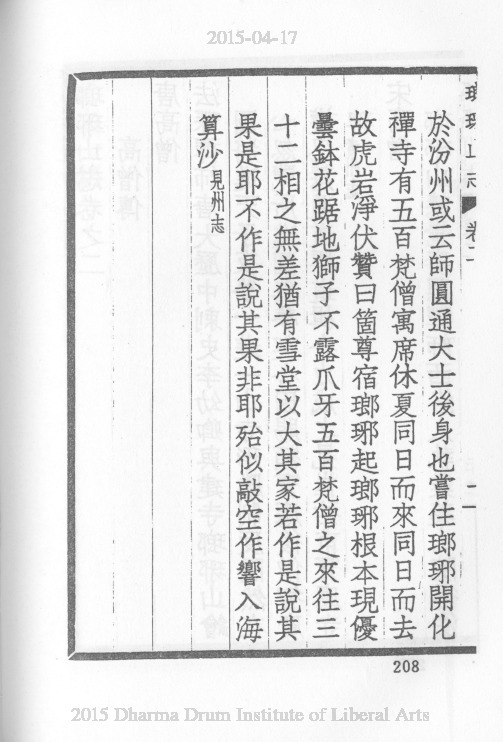 2015-04-17
瑯琊山志 卷二 二
於汾州或云師圓通大士後身也嘗住瑯琊開化
禪寺有五百梵僧寓席休夏同日而來同日而去
故虎岩淨伏贊曰箇尊宿瑯琊起瑯琊根本現優
曇鉢花踞地獅子不露爪牙五百梵僧之來往三
十二相之無差猶有雪堂以大其家若作是說其
果是耶不作是說其果非耶殆似敲空作響入海
算沙見州志
208
2015 Dharma Drum Institute of Liberal Arts